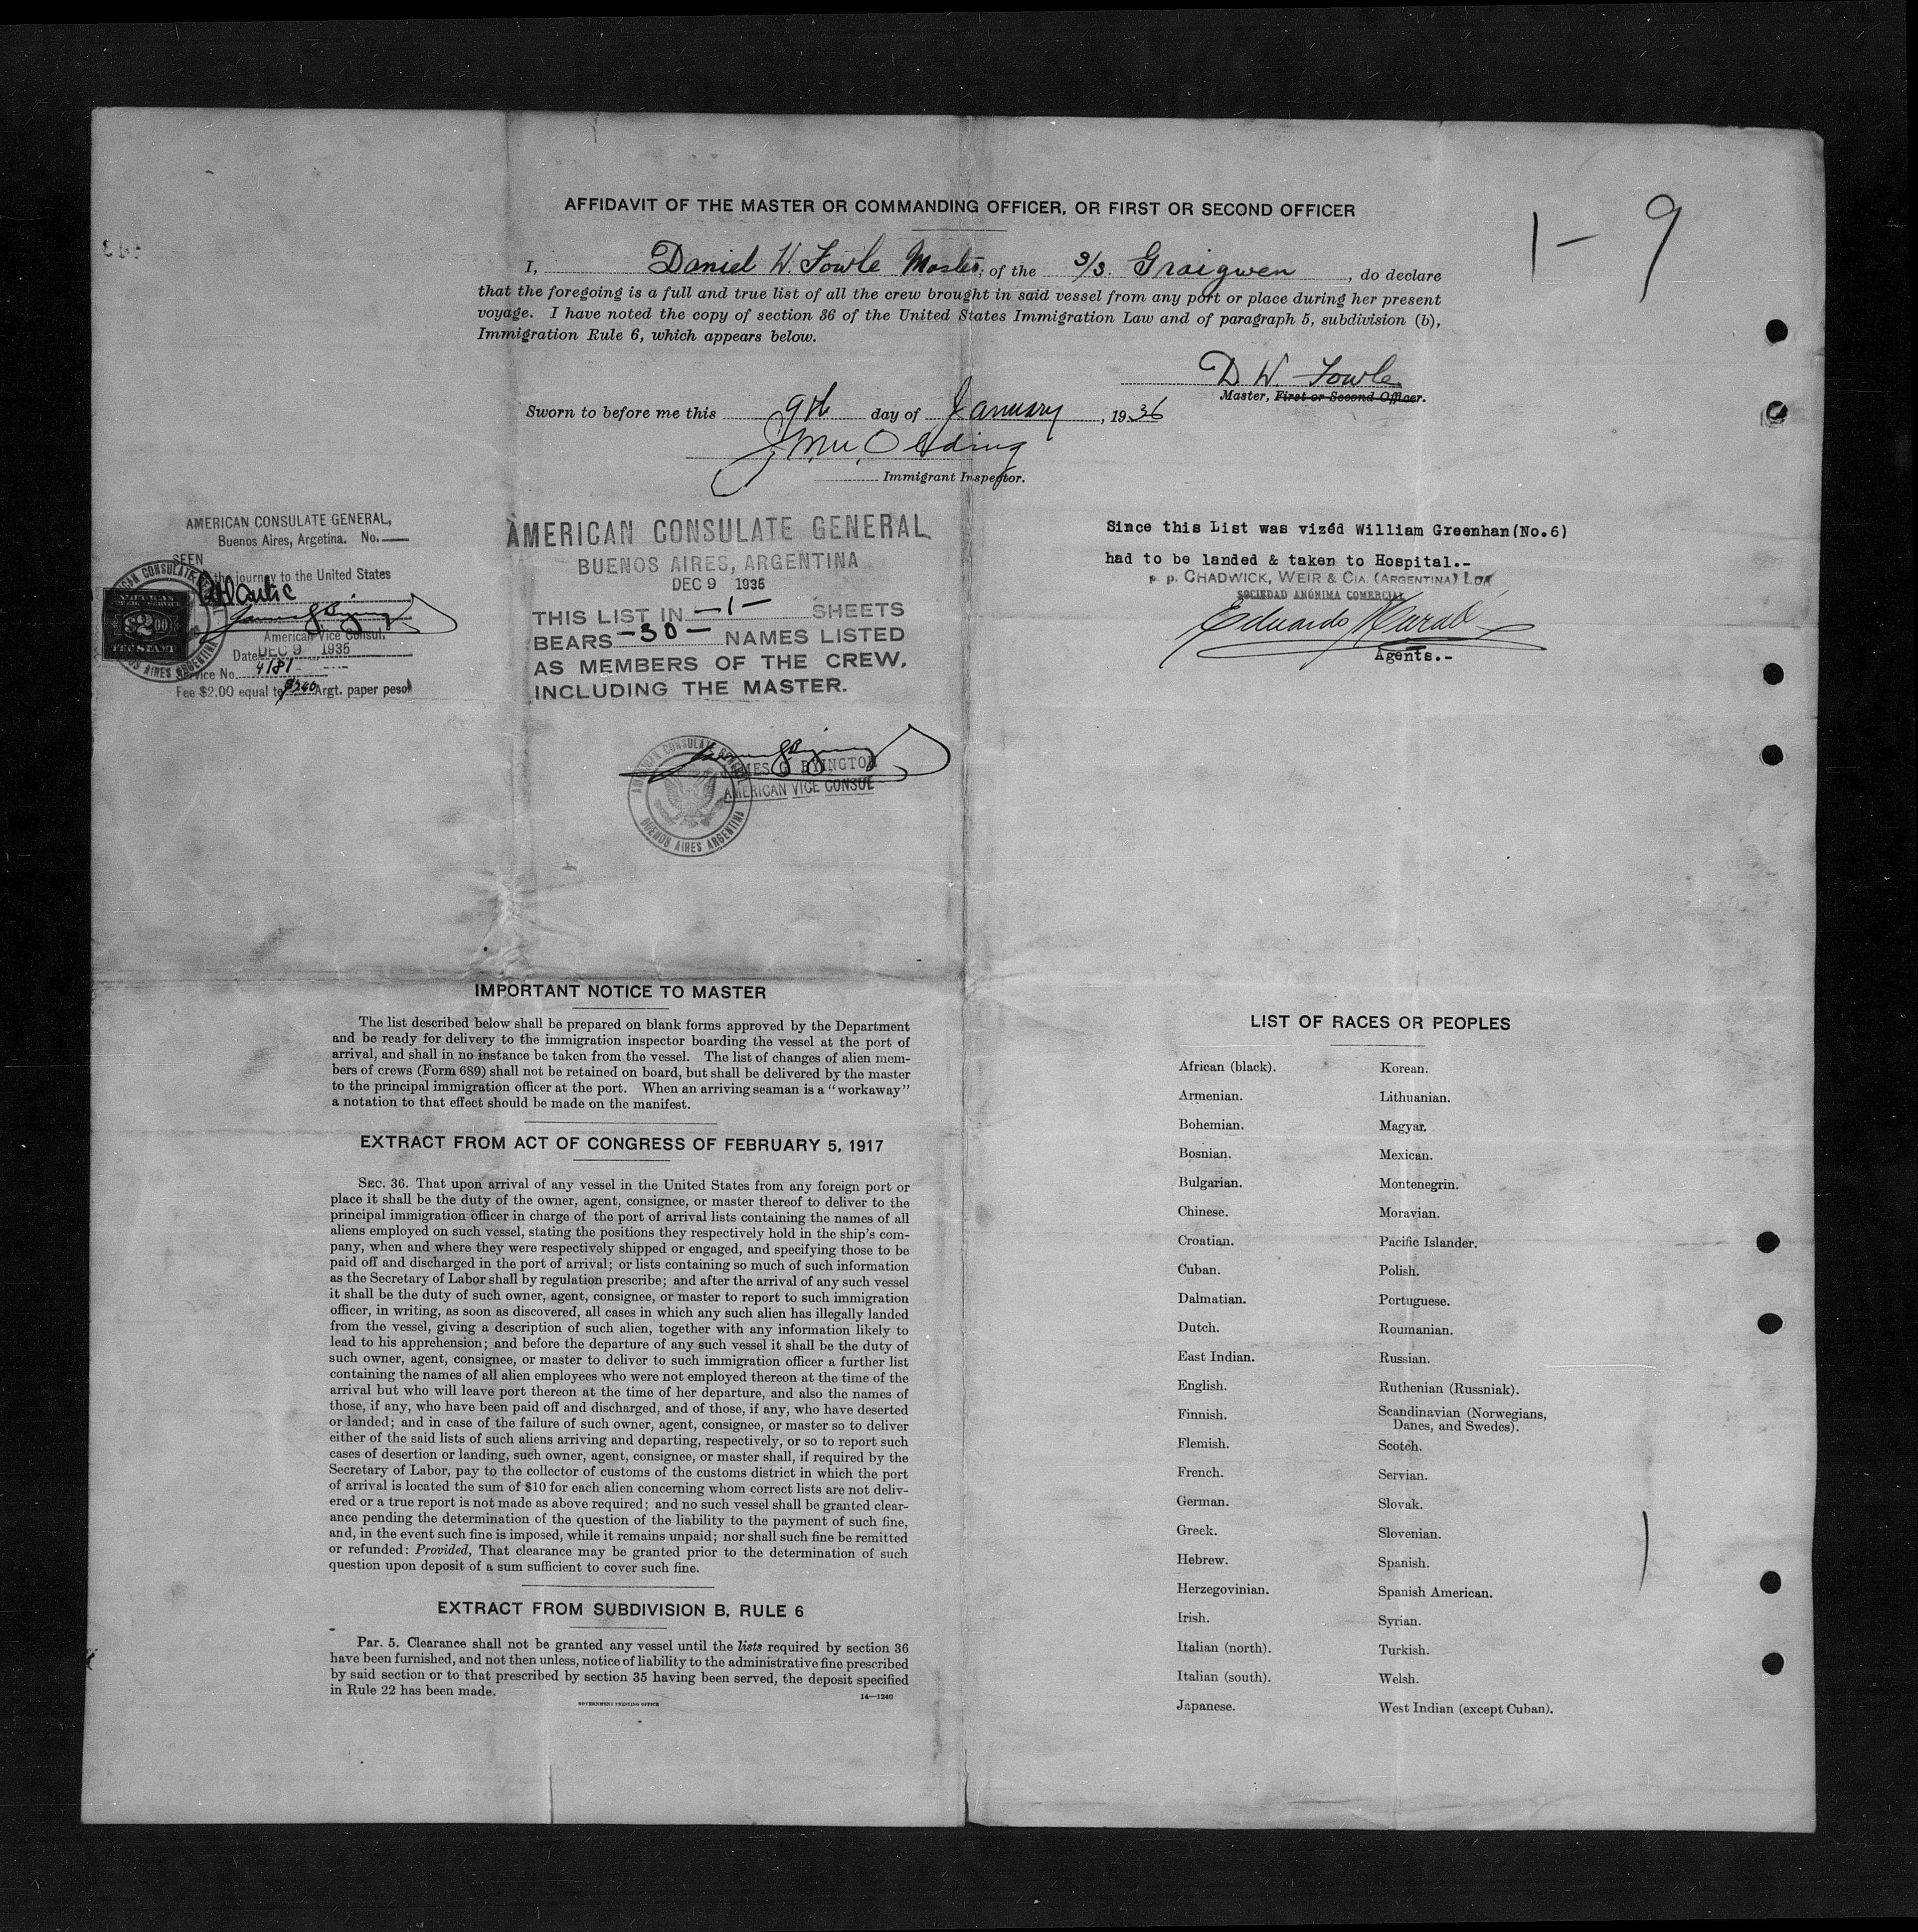 AFFIDAVIT OF THE MASTER OR COMMANDING OFFICER, OR FIRST OR SECOND OFFICER
1 - 9
I, Daniel W. Fowle Master, of the S/S. Graigwen, do declare
that the foregoing is a full and true list of all the crew brought in said vessel from any port or place during her present
voyage. I have noted the copy of section 36 of the United States Immigration Law and of paragraph 5, subdivision (b),
Immigration Rule 6, which appears below.
D W. Fowle
Master, First or Second Officer.
Sworn to before me this 9th day of January, 1936
Immigrant Inspector.
AMERICAN CONSULATE GENERAL,
Buenos Aires, Argetina. No.
SEEN
the journey to the United States
Atlantic
American Vice Consul.
Date DEC 9 1935
Service No. 4181
Fee $2.00 equal to Argt. paper pesos
AMERICAN
$2.00
FEE STAMP
AMERICAN CONSULATE GENERAL
BUENOS AIRES, ARGENTINA
DEC 9 1935
THIS LIST IN -1- SHEETS
BEARS -30- NAMES LISTED
AS MEMBERS OF THE CREW,
INCLUDING THE MASTER.
JAMES G. BYINGTON
AMERICAN VICE CONSUL
AMERICAN CONSULATE GENERAL
BUENOS AIRES ARGENTINA
Since this List was vizéd William Greenhan(No.6)
had to be landed & taken to Hospital.-
p. p. CHADWICK, WEIR & CIA. (ARGENTINA) LDA
SOCIEDAD ANÓNIMA COMERCIAL
Eduardo
Agents.-
IMPORTANT NOTICE TO MASTER
The list described below shall be prepared on blank forms approved by the Department
and be ready for delivery to the immigration inspector boarding the vessel at the port of
arrival, and shall in no instance be taken from the vessel. The list of changes of alien mem-
bers of crews (Form 689) shall not be retained on board, but shall be delivered by the master
to the principal immigration officer at the port. When an arriving seaman is a "workaway"
a notation to that effect should be made on the manifest.
EXTRACT FROM ACT OF CONGRESS OF FEBRUARY 5, 1917
SEC. 36. That upon arrival of any vessel in the United States from any foreign port or
place it shall be the duty of the owner, agent, consignee, or master thereof to deliver to the
principal immigration officer in charge of the port of arrival lists containing the names of all
aliens employed on such vessel, stating the positions they respectively hold in the ship's com-
pany, when and where they were respectively shipped or engaged, and specifying those to be
paid off and discharged in the port of arrival; or lists containing so much of such information
as the Secretary of Labor shall by regulation prescribe; and after the arrival of any such vessel
it shall be the duty of such owner, agent, consignee, or master to report to such immigration
officer, in writing, as soon as discovered, all cases in which any such alien has illegally landed
from the vessel, giving a description of such alien, together with any information likely to
lead to his apprehension; and before the departure of any such vessel it shall be the duty of
such owner, agent, consignee, or master to deliver to such immigration officer a further list
containing the names of all alien employees who were not employed thereon at the time of the
arrival but who will leave port thereon at the time of her departure, and also the names of
those, if any, who have been paid off and discharged, and of those, if any, who have deserted
or landed; and in case of the failure of such owner, agent, consignee, or master so to deliver
either of the said lists of such aliens arriving and departing, respectively, or so to report such
cases of desertion or landing, such owner, agent, consignee, or master shall, if required by the
Secretary of Labor, pay to the collector of customs of the customs district in which the port
of arrival is located the sum of $10 for each alien concerning whom correct lists are not deliv-
ered or a true report is not made as above required; and no such vessel shall be granted clear-
ance pending the determination of the question of the liability to the payment of such fine,
and, in the event such fine is imposed, while it remains unpaid; nor shall such fine be remitted
or refunded: Provided, That clearance may be granted prior to the determination of such
question upon deposit of a sum sufficient to cover such fine.
EXTRACT FROM SUBDIVISION B, RULE 6
Par. 5. Clearance shall not be granted any vessel until the lists required by section 36
have been furnished, and not then unless, notice of liability to the administrative fine prescribed
by said section or to that prescribed by section 35 having been served, the deposit specified
in Rule 22 has been made.
14—1240
GOVERNMENT PRINTING OFFICE
LIST OF RACES OR PEOPLES
African (black).
Armenian.
Bohemian.
Bosnian.
Bulgarian.
Chinese.
Croatian.
Cuban.
Dalmatian.
Dutch.
East Indian.
English.
Finnish.
Flemish.
French.
German.
Greek.
Hebrew.
Herzegovinian.
Irish.
Italian (north).
Italian (south).
Japanese.
Korean.
Lithuanian.
Magyar.
Mexican.
Montenegrin.
Moravian.
Pacific Islander.
Polish.
Portuguese.
Roumanian.
Russian.
Ruthenian (Russniak).
Scandinavian (Norwegians,
Danes, and Swedes).
Scotch.
Servian.
Slovak.
Slovenian.
Spanish.
Spanish American.
Syrian.
Turkish.
Welsh.
West Indian (except Cuban).